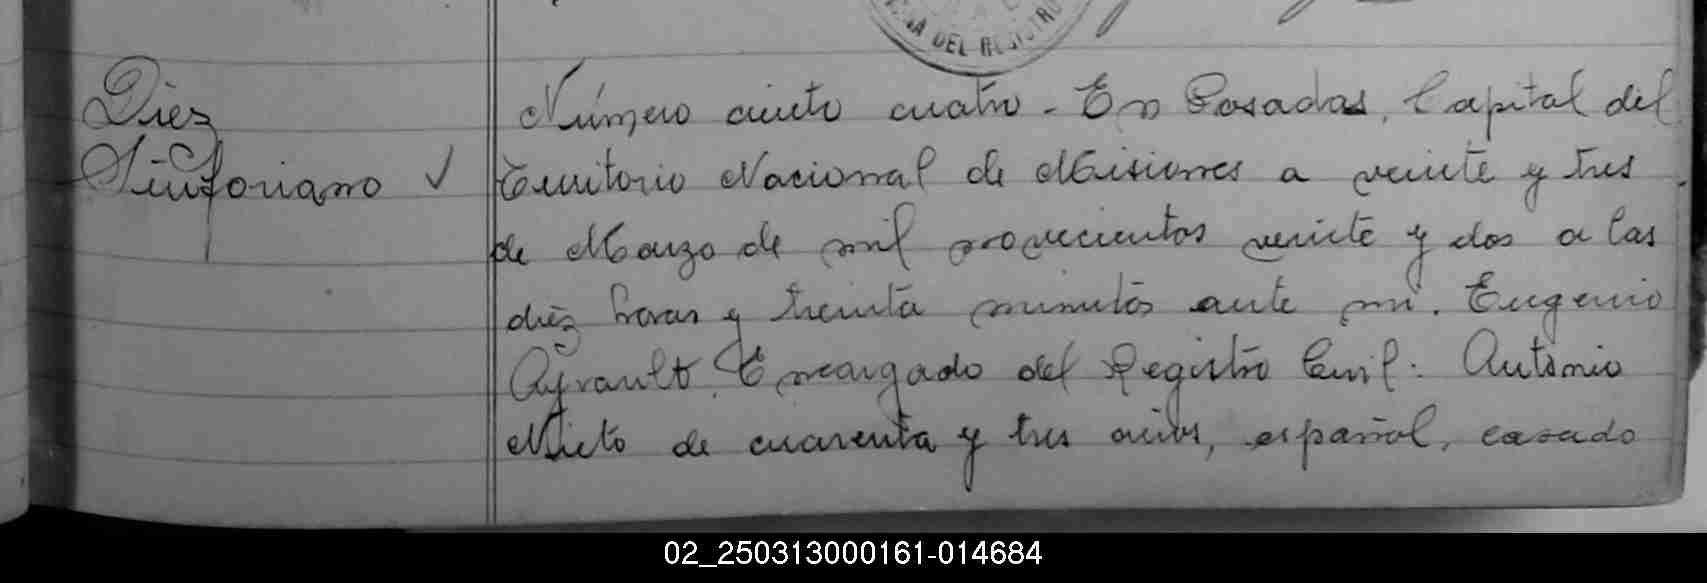 DEL REGISTRO
Diez
Sinforiano ✓
Número ciento cuatro - En Posadas, Capital del
Territorio Nacional de Misiones a veinte y tres
de Marzo de mil novecientos veinte y dos a las
diez horas y treinta minutos ante mi. Eugenio
Ayrault, Encargado del Registro Civil: Antonio
Nieto de cuarenta y tres años, español, casado
02_250313000161-014684